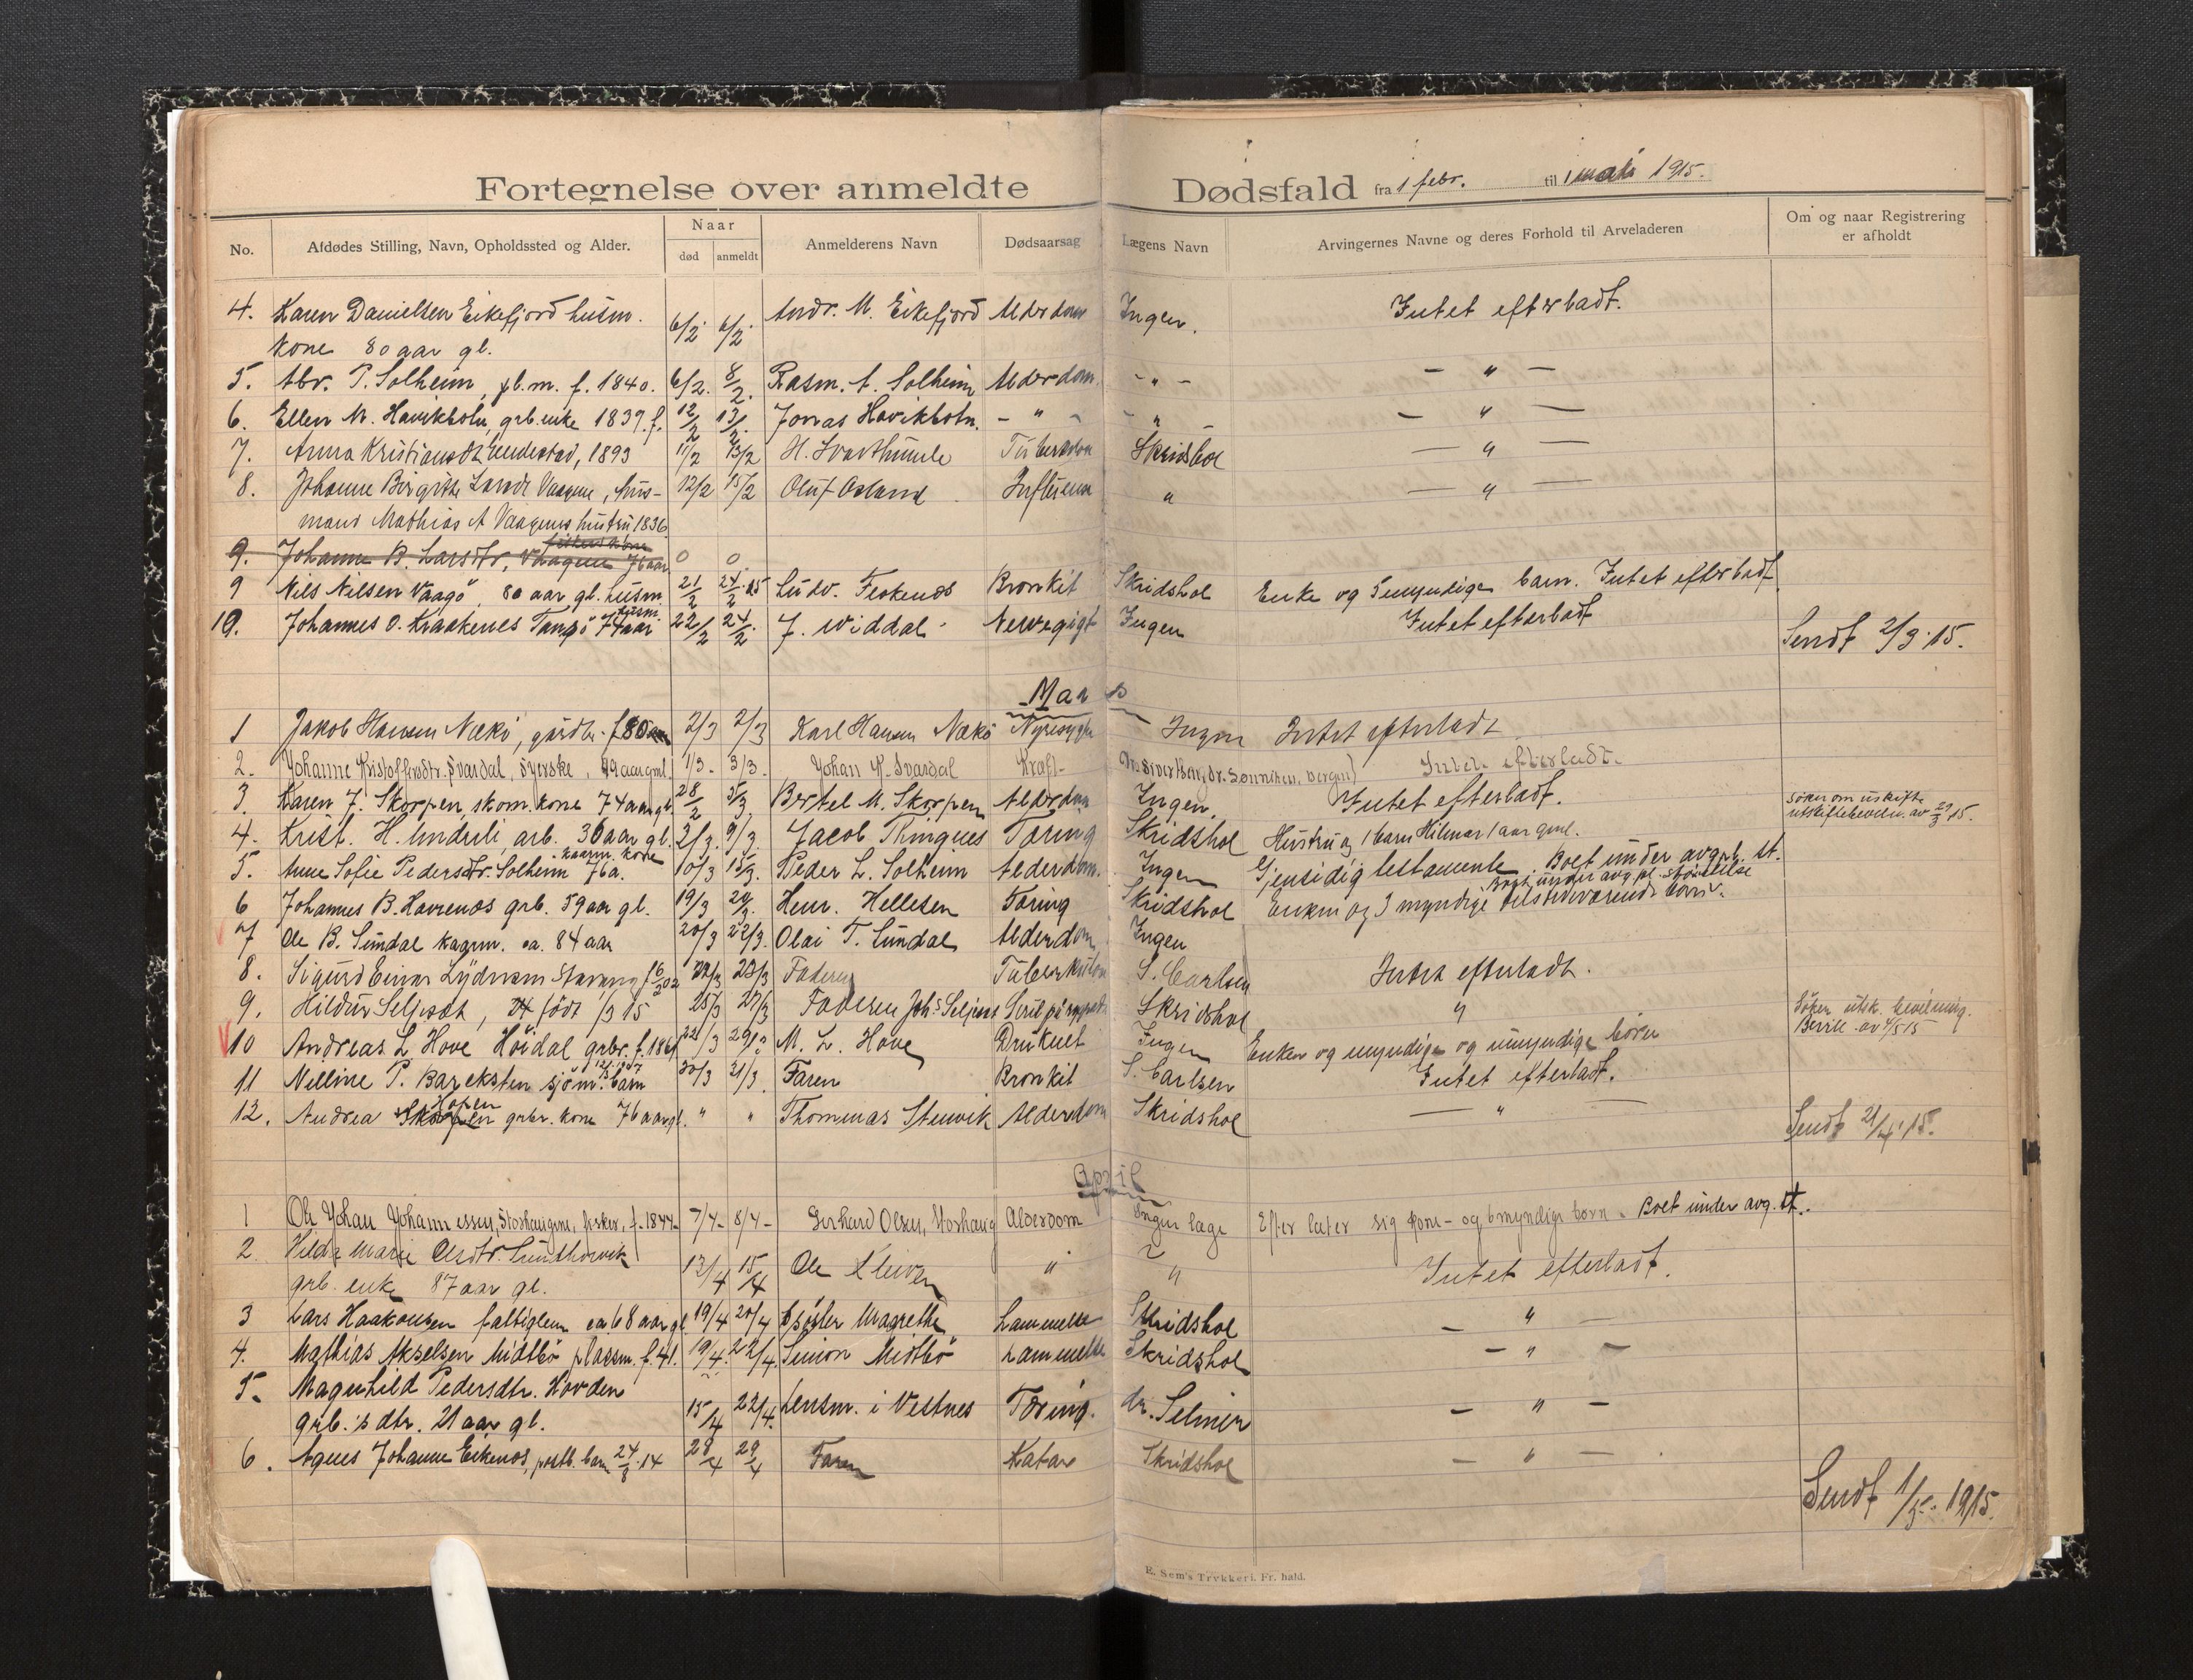 Fortegnelse over anmeldte Dødsfald fra 1 febr. til 1 mai 1915.
No. Afdødes Stilling, Navn, Opholdssted og Alder. Naar død anmeldt Anmelderens Navn Dødsaarsag Lægens Navn Arvingernes Navne og deres Forhold til Arveladeren Om og naar Registrering er afholdt
4. Karen Danielsen Eikefjord husm. 6/2 6/2 Andr. M. Eikefjord Alderdom Ingen. Intet efterladt.
kone 80 aar gl.
5. Abr. P. Solheim, pl.m. f. 1840. 6/2. 8/2. Rasm. A. Solheim Alderdom. - " - - " -
6. Ellen M. Havikbotn, grb.enke 1839. f. 12/2 13/2. Jonas Havikbotn. - " - - " - - " -
7. Anna Kristiansdt Endestad, 1893 11/2 13/2 H. Svarthumle Tuberkulose Skridshol - " -
8. Johanne Birgitte Larsdt Vaagene, hus- 12/2 15/2 Oluf Osland Influensa " - " -
mand Mathias A Vaagenes hustru 1836
fiskers kone
9. Johanne B. Larsdtr. Vaagene 76 aar 0 0
9 Nils Nilsen Vaagö 80 aar gl. husm. 21/2 24/2 15 Ludv. Feskenes Bronkit Skridshol Enke og 5 umyndige barn. Intet efterladt
husm.
10. Johannes O. Kraakenes Tansö 77 aar 22/2 24/2. J. Widdal Nervegigt Ingen Intet efterladt Sendt 2/3.15.
Mars
1 Jakob Hansen Nækö, gårdbr. f 80 aar 2/3 2/3 Karl Hansen Nækö Nyresygd Ingen Intet efterladt
2. Johanne Kristoffersdtr. Svardal, syerske, 49 aar gml. 1/3. 3/3. Johan K. Svardal Kræft Intet efterladt.
3. Karen J. Skorpen, skom. kone 74 aar gl. 28/2 3/3 Bertel M. Skorpen Alderdom Ingen. Intet efterladt. Söker om uskifte
4. Krist. H. Indreli arb. 36 aar gl. 2/3. 9/3. Jacob Ringnes Tæring Skridshol Hustru og 1 barn Hilmar 1 aar gml. utskiftebevilln. av 29/3 15.
kaarm. kone
5. Anne Sofie Pedersdtr. Solheim 76 a. 10/3 15/3. Peder L. Solheim Alderdom. Ingen Gjensidig testamente. Boet under avgrb. st.
6 Johannes B. Havrenes grb. 59 aar gl. 19/3 20/3. Henr. Hellesen Tæring Skridshol Enken og 3 myndige tilstedeværende barn.
7 Ole B. Sundal kaarm. ca. 84 aar 20/3 22/3. Olai T. Sundal Alderdom Ingen
8. Sigurd Einar Lydersen Stavang 22/3 23/3 Faderen Tuberkulose S. Carlsen Intet efterladt.
9. Hildur Seljeset, født /3 15 25/3 27/3 Faderen Joh. Seljeset Skridshol "
10 Andreas L Hove Höidal grbr. f. 1861 22/3 29/3 M. L. Hove Druknet Ingen Enken og myndige og umyndige börn Söker utsk. bevilning. Bevill. av 4/5 15
11 Nelline P. Bareksten sjöm. barn 30/3 31/3 Faren Bronkit S. Carlsen Intet efterladt.
12. Andrea Hopen grbr. kone 76 aar gl. " " Thommas Stenvik Alderdom Skridshol - " - Sendt 21/4.15.
April
1 Ole Johan Johannessen, Storhaugene, fisker, f. 1844 7/4- 8/4- Gerhard Olsen, Storhaug Alderdom Ingen læge Efterlater sig kone- og 6 myndige born. Boet under avg. st.
2 Hilda Marie Olsdtr. Sundhovik 13/4 15/4 Ole Kleiven " " Intet efterladt.
grb. enke 87 aar gl.
3 Lars Haakonsen fattiglem ca 68 aar gl. 19/4 20/4 Søster Magrethe Lammelse Skridshol - " -
4. Mathias Akselsen Midtbö plassm. f. 41. 19/4. 22/4. Simon Midtbö Lammelse Skridshol - " -
5. Magnhild Pedersdtr. Hovden
grb.'s dtr. 21 aar gl. 15/4 22/4. Lensm. i Vestnes Tæring. dr. Selmer - " -
6. Agnes Johanne Eikenes, postb. barn 24/8.14 28/4 29/4 Faren Katar Skridshol - " -
Sendt 1/5. 1915.
E. Sem's Trykkeri. Fr. hald.